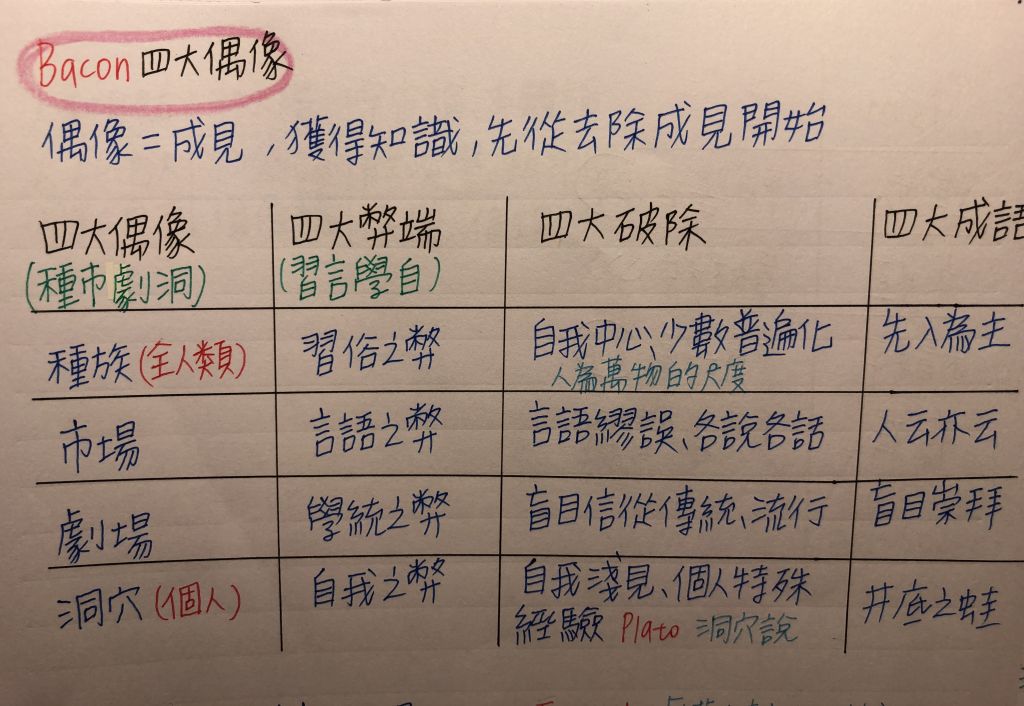 Bacon 四大偶像
偶像=成見,獲得知識,先從去除成見開始
四大偶像 四大弊端 四大破除 四大成語
(種市劇洞) (習言學自)
種族(全人類) 習俗之弊 自我中心、少數普遍化 先入為主
人為萬物的尺度
市場 言語之弊 言語繆誤、各說各話 人云亦云
劇場 學統之弊 盲目信從傳統、流行 盲目崇拜
洞穴(個人) 自我之弊 自我淺見、個人特殊 井底之蛙
經驗 Plato 洞穴說